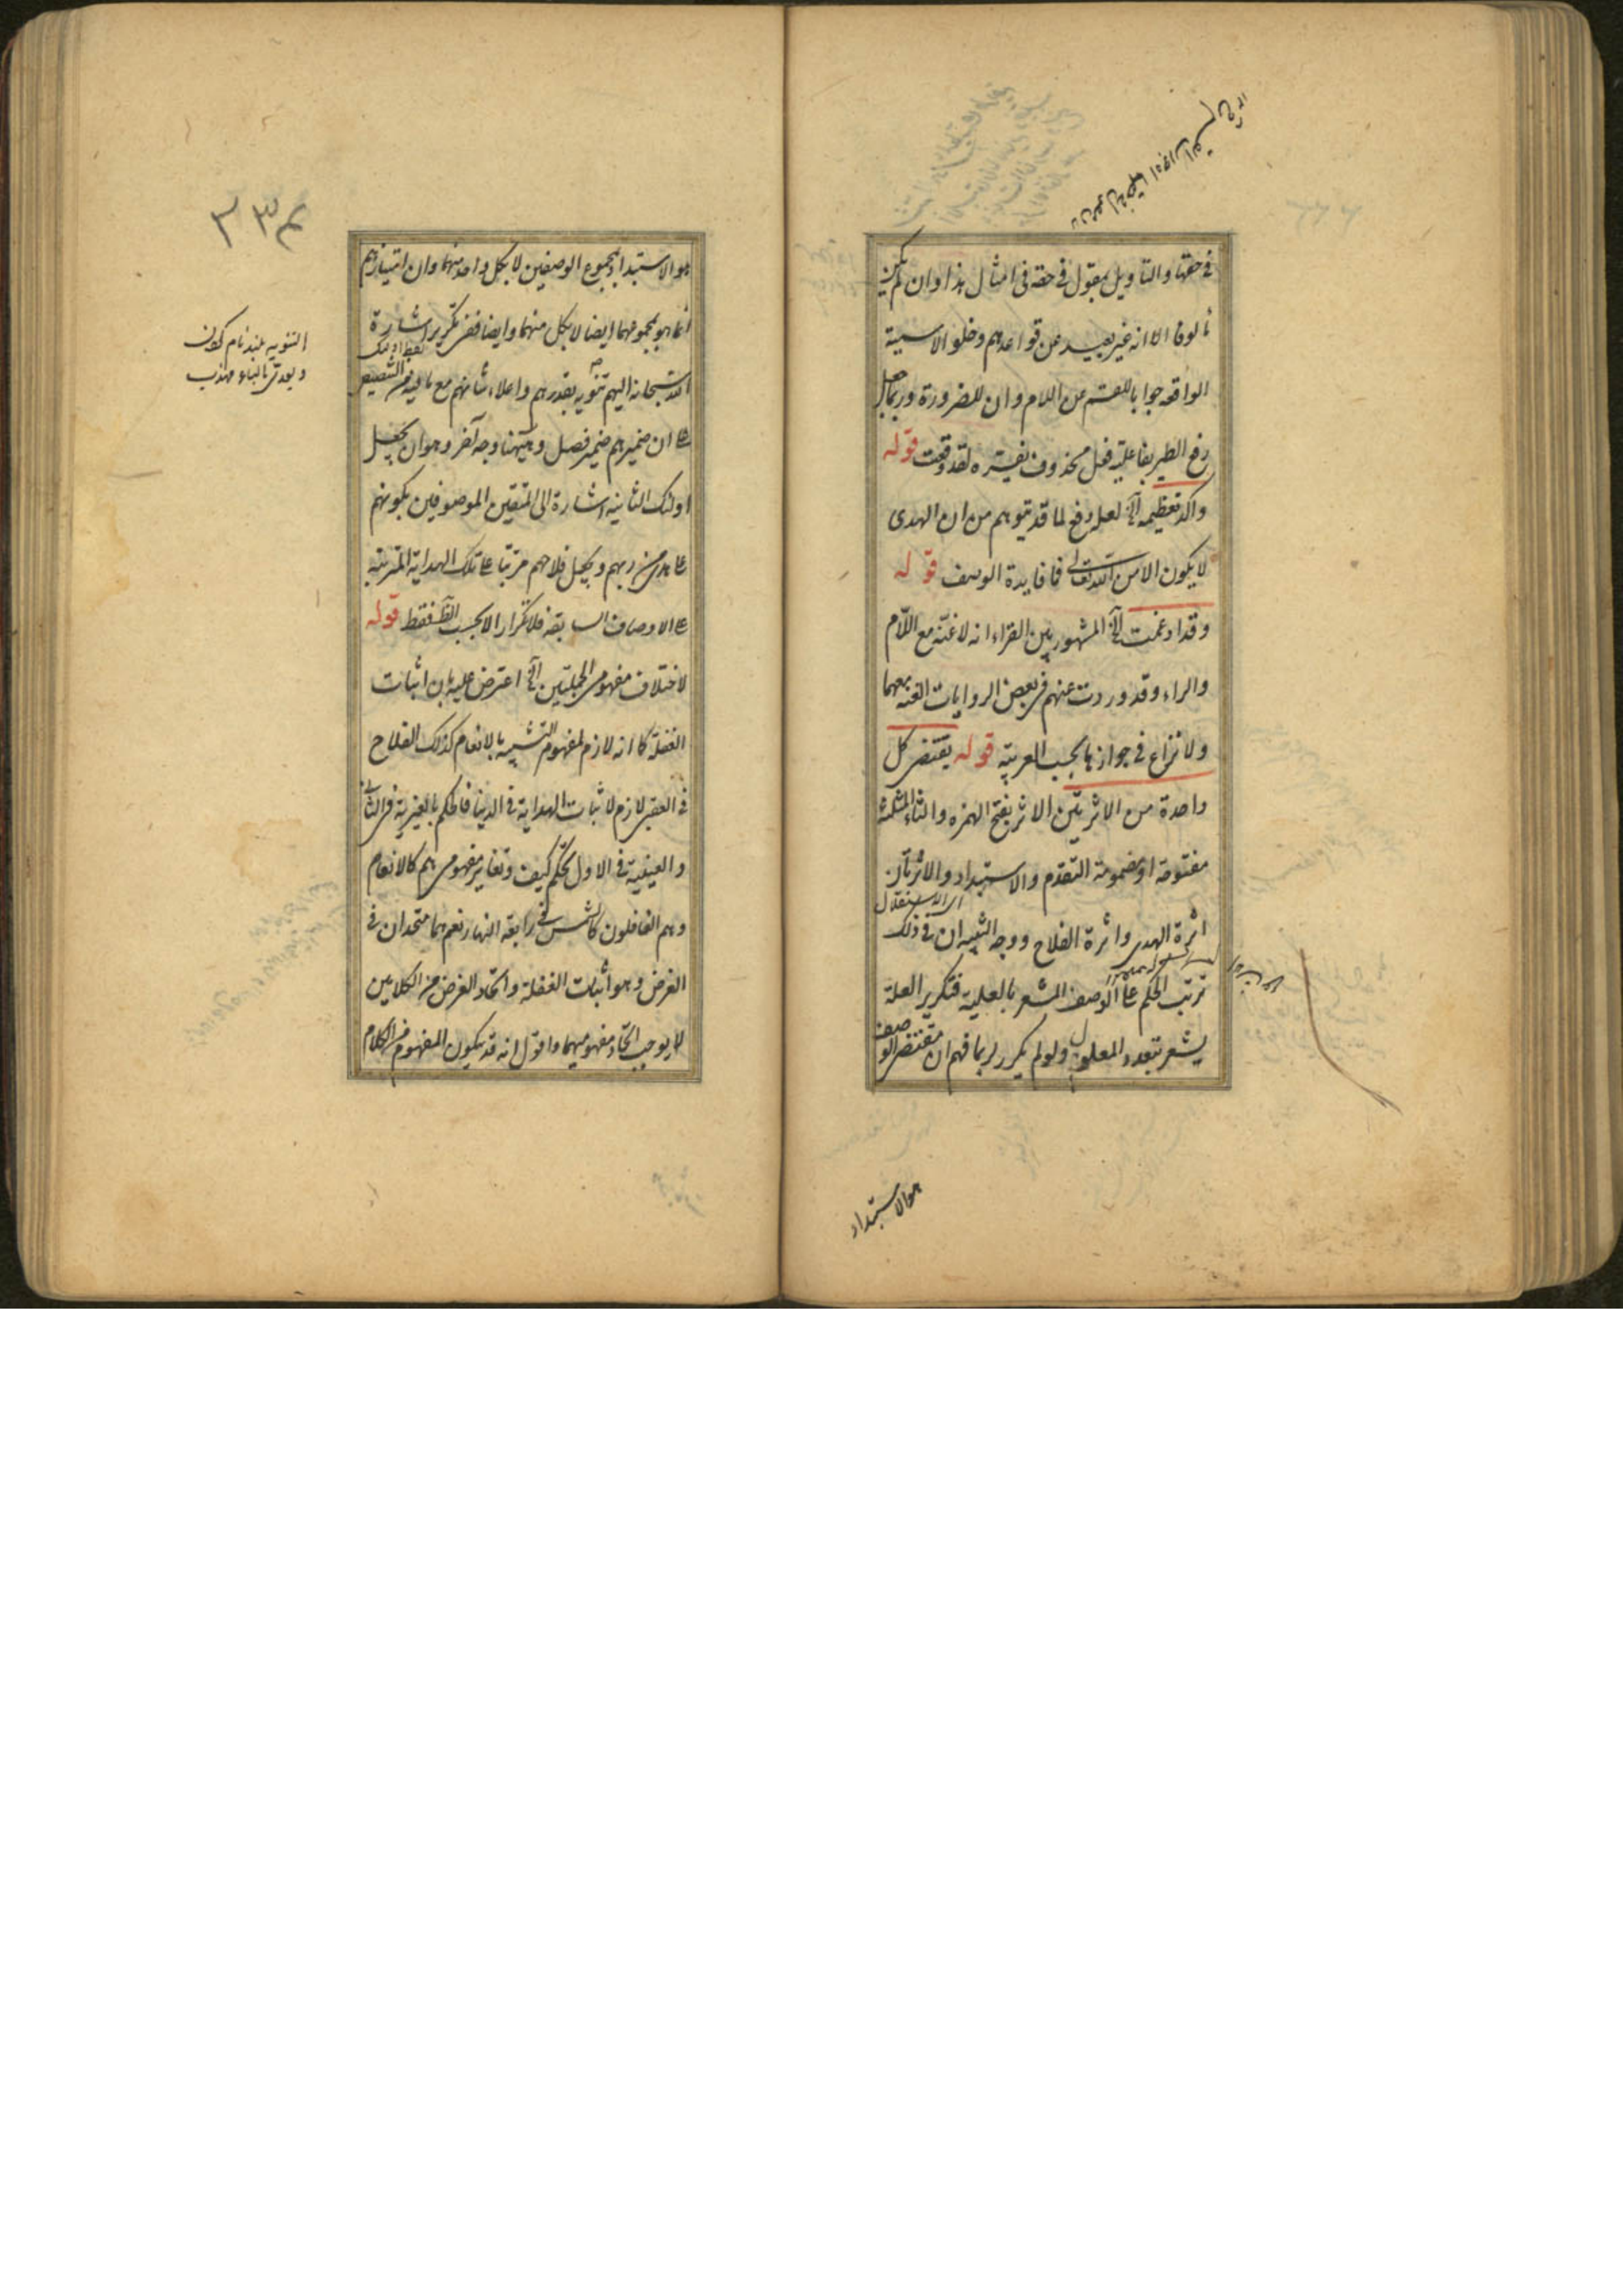 في حقها والتاويل بمقول في حقه في امثال هذا وان لم يكن
مالوفا الا انه غير بعيد عن قواعدهم وخلو الاسمية
الواقعه جوابا للقسم عن اللام وان للضرورة وربما يجعل
رفع الطير بفاعلية فعل محذوف يفسره لقد وقعت قوله
واكد تعظيمه الخ لعله دفع لما قد يتوهم من ان الهدى
لا يكون الا من الله تعالى فما فايدة الوصف قوله
وقد ادغمت الخ المشهور بين القراء انه لا غنة مع اللام
والراء وقد وردت عنهم في بعض الروايات الغنه معهما
ولا نزاع في جوازها بحسب العربية قوله يقتضي كل
واحدة من الاثرتين الاثر بفتح الهمزه والثاء المثلثة
مفتوحة او مضمومة التقدم والاستبداد والاثرتان
اي الاستقلال
اثرة الهدى واثرة الفلاح ووجه التنبيه ان في ذلك
ترتب الحكم على الوصف المشعر بالعلية فتكرير العلة
يشعر بتعدد المعلول ولو لم يكرر لربما فهم ان مقتضى الوصف
هو الاستبداد
٣٣٤
هو الاستبداد بمجموع الوصفين لا بكل واحد منهما وان امتيازهم
انما هو بمجموعهما ايضا لا بكل منهما وايضا ففي تكرير اشارة
لفظ اولئك
الله سبحانه اليهم تنويه بقدرهم واعلاء شأنهم مع ما فيه من التنصيص
على ان ضميرهم ضمير فصل وهيهنا وجه آخر وهو ان يجعل
اولئك الثانيه اشارة الى المتقين الموصوفين بكونهم
على هدى من ربهم ويجعل فلاحهم مرتبا على تلك الهداية المترتبه
على الاوصاف السابقه فلا تكرار الا بحسب الظ فقط قوله
لاختلاف مفهومي الجملتين الخ اعترض عليه بان اثبات
الغفلة كما انه لازم لمفهوم التشبيه بالانعام كذلك الفلاح
في العقبى لازم لاثبات الهداية في الدنيا فالحكم بالغيرية في الثاني
والعينية في الاول تحكم كيف وتغاير مفهومي هم كالانعام
وهم الغافلون كالشمس في رابعة النهار نعم هما متحدان في
الغرض وهو اثبات الغفلة واتحاد الغرض من الكلامين
لا يوجب اتحاد مفهوميهما واقول انه قد يكون المفهوم من الكلام
التنويه بلند نام كردن
ويعدى بالباء مهذب